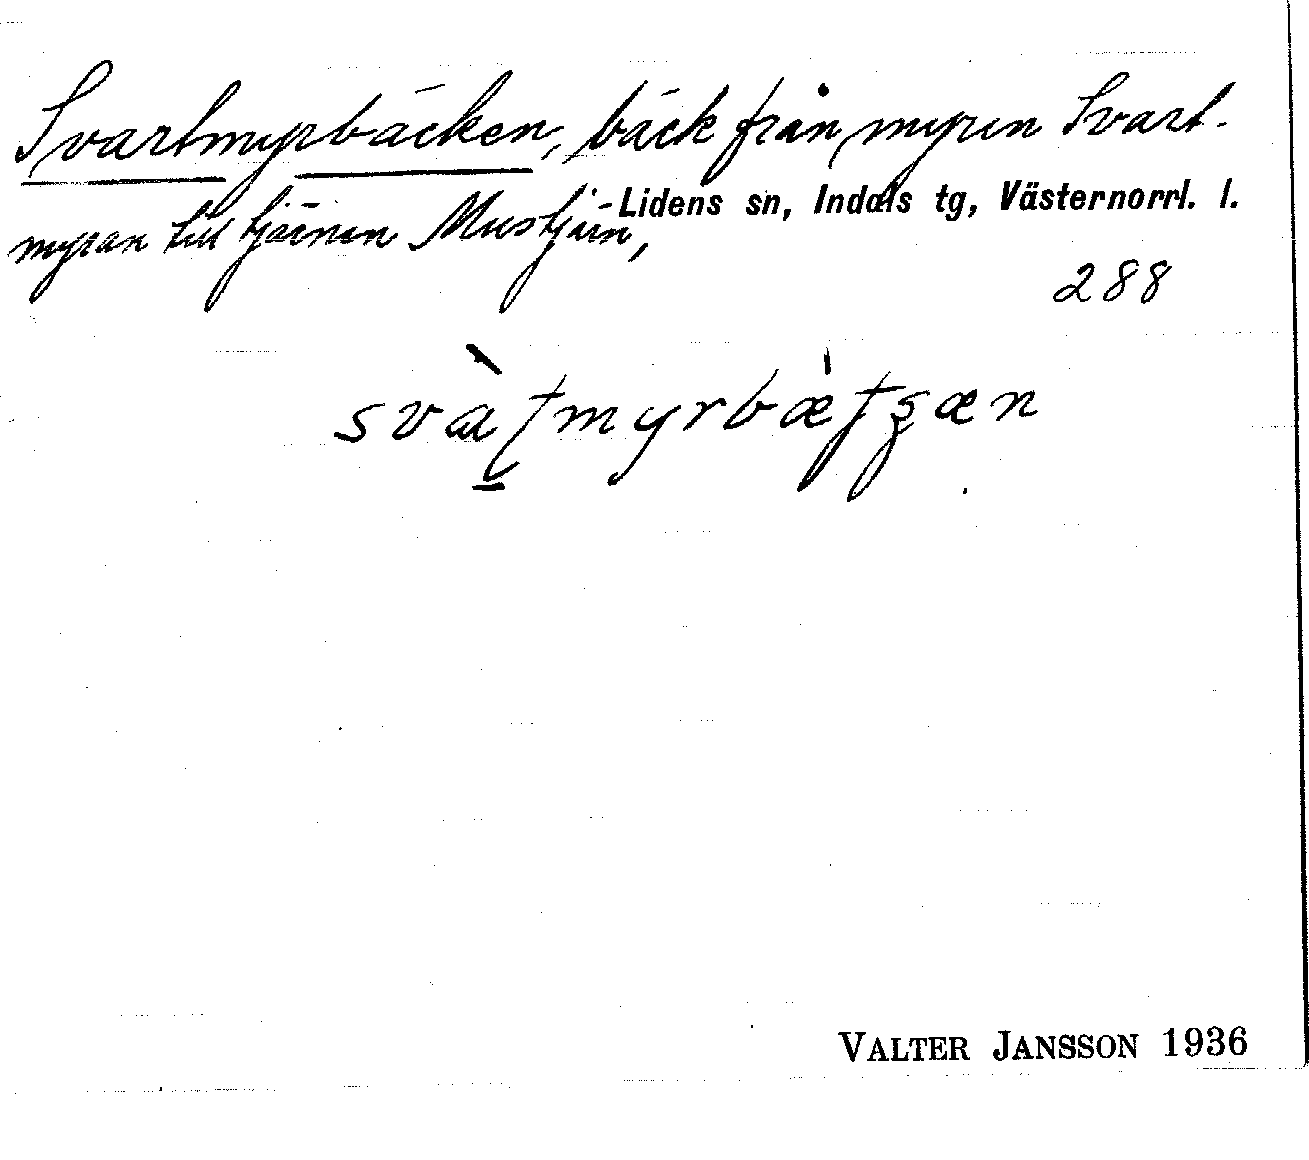 Svartmyrbäcken, bäck från myren Svart-
myran till tjärnen Mustjärn,
Lidens sn, Indals tg, Västernorrl. l.
288
VALTER JANSSON 1936